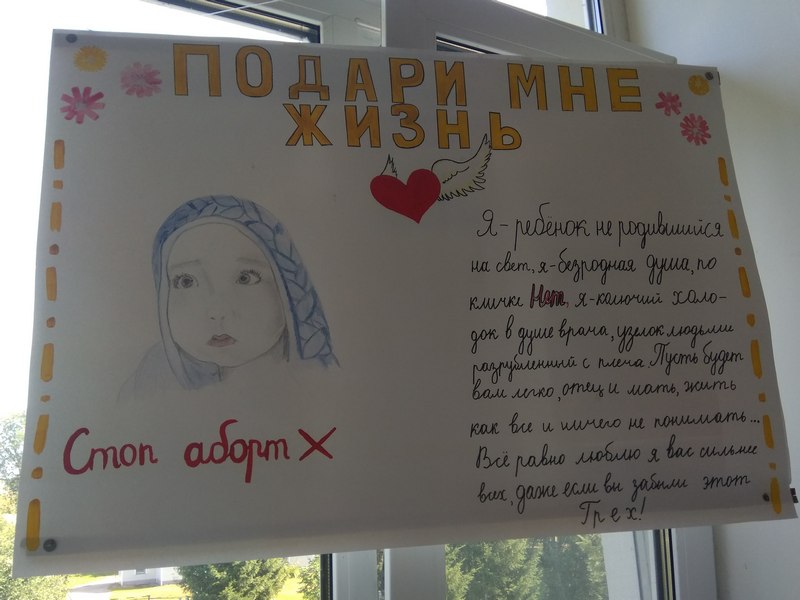 ПОДАРИ МНЕ
ЖИЗНЬ
Я-ребёнок не родившийся
на свет, я-безродная душа, по
кличке Нет, я-колючий холо-
док в душе врача, узелок людьми
разрубленный с плеча Пусть будет
вам легко, отец и мать, жить
как все и ничего не понимать...
Всё равно люблю я вас сильнее
всех, даже если вы забыли этот
Грех!
Стоп аборт X